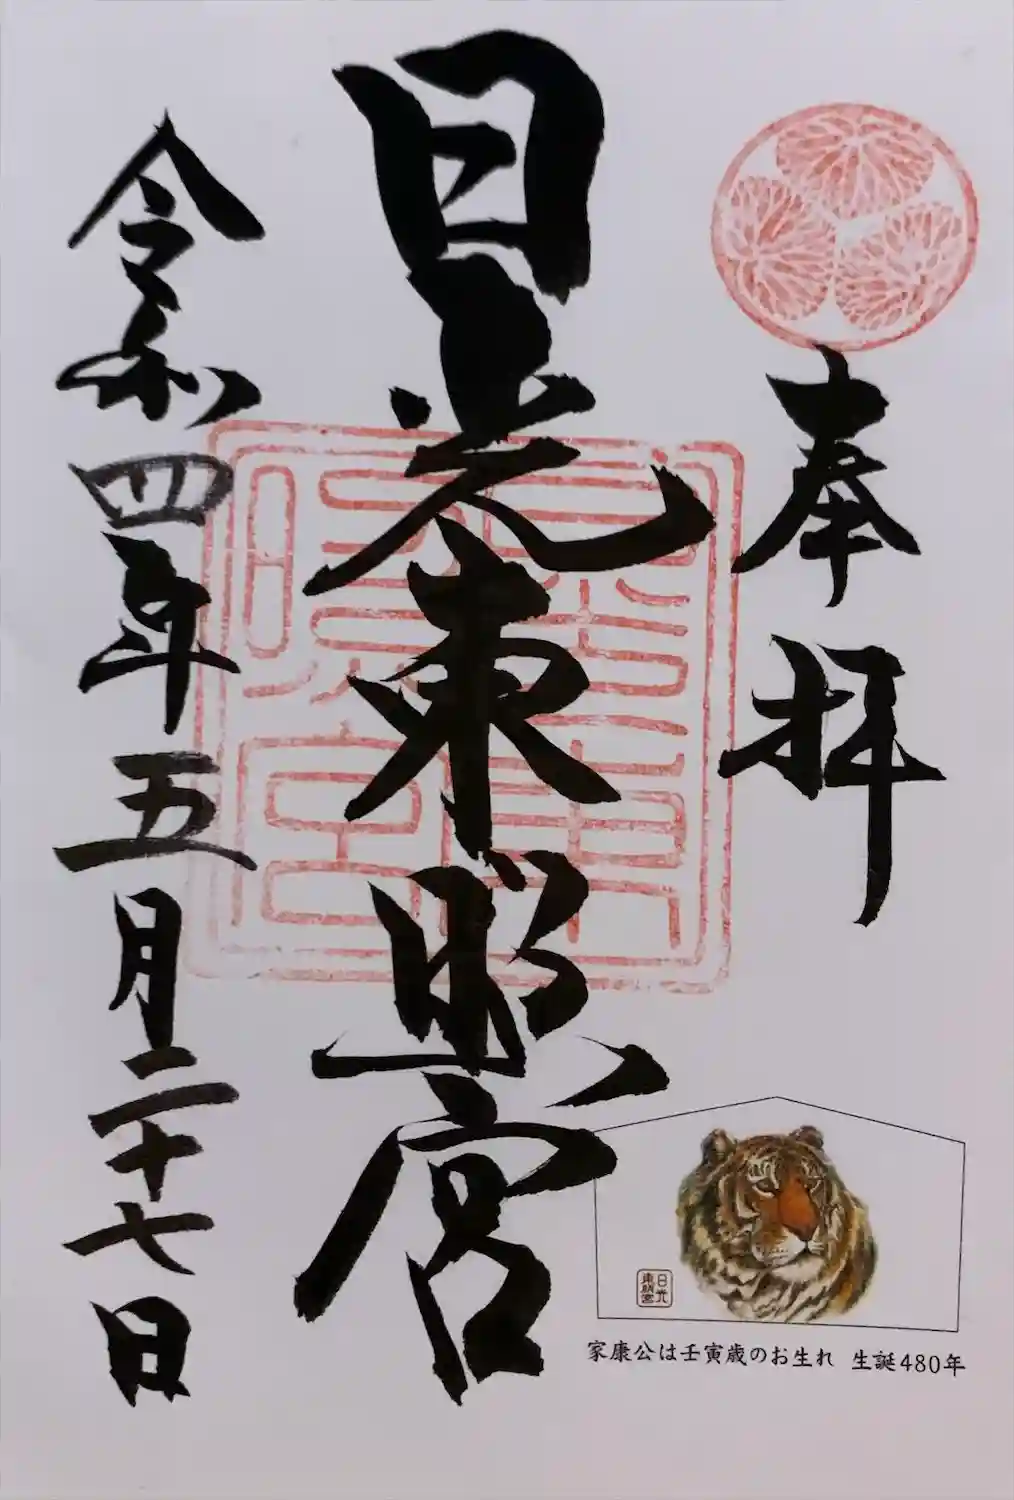 奉拝
日光東照宮
令和四年五月二十七日
日光
東照宮
家康公は壬寅歳のお生れ 生誕480年